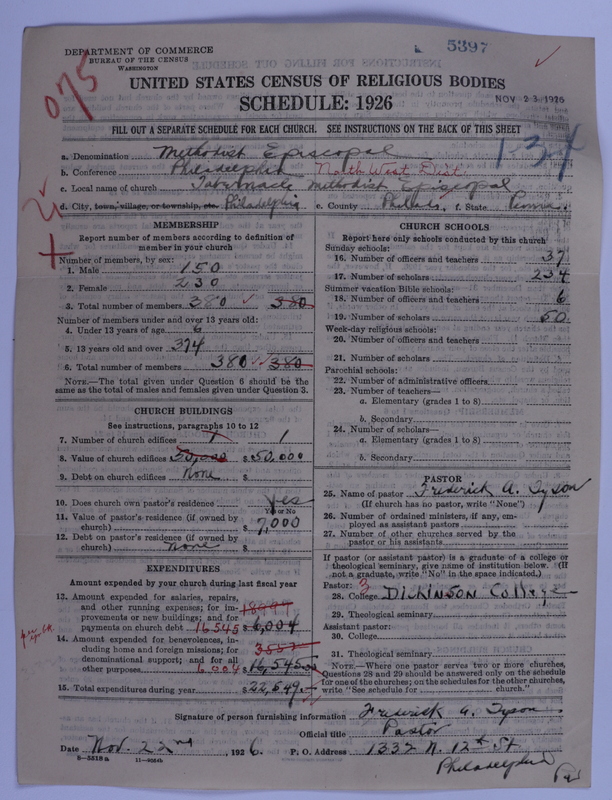 5397
DEPARTMENT OF COMMERCE
BUREAU OF THE CENSUS
WASHINGTON
075
UNITED STATES CENSUS OF RELIGIOUS BODIES
SCHEDULE: 1926
NOV 23 1926
FILL OUT A SEPARATE SCHEDULE FOR EACH CHURCH. SEE INSTRUCTIONS ON THE BACK OF THIS SHEET
1-34
a. Denomination Methodist Episcopal
b. Conference Philadelphia North West Dist.
c. Local name of church Tabernacle Methodist Episcopal
d. City, town, village, or township, etc. Philadelphia e. County Philada. f. State Penna.
MEMBERSHIP
Report number of members according to definition of member in your church
Number of members, by sex:
1. Male 150
2. Female 230
3. Total number of members 380 380
Number of members under and over 13 years old:
4. Under 13 years of age 6
5. 13 years old and over 374
6. Total number of members 380 380
NOTE.—The total given under Question 6 should be the same as the total of males and females given under Question 3.
CHURCH BUILDINGS
See instructions, paragraphs 10 to 12
7. Number of church edifices 1 1
8. Value of church edifices 50,000 $ 50,000
9. Debt on church edifices None $
10. Does church own pastor's residence Yes
Yes or No
11. Value of pastor's residence (if owned by church) $ 7,000
12. Debt on pastor's residence (if owned by church) None $
EXPENDITURES
Amount expended by your church during last fiscal year
13. Amount expended for salaries, repairs, and other running expenses; for improvements or new buildings; and for payments on church debt 16545 $ 6,004
14. Amount expended for benevolences, including home and foreign missions; for denominational support; and for all other purposes 6,004 $ 16,545
15. Total expenditures during year $ 22,549
CHURCH SCHOOLS
Report here only schools conducted by this church
Sunday schools:
16. Number of officers and teachers 37
17. Number of scholars 234
Summer vacation Bible schools:
18. Number of officers and teachers 6
19. Number of scholars 50
Week-day religious schools:
20. Number of officers and teachers
21. Number of scholars
Parochial schools:
22. Number of administrative officers
23. Number of teachers—
a. Elementary (grades 1 to 8)
b. Secondary
24. Number of scholars—
a. Elementary (grades 1 to 8)
b. Secondary
PASTOR
25. Name of pastor Frederick A. Tyson
(If church has no pastor, write "None")
26. Number of ordained ministers, if any, employed as assistant pastors
27. Number of other churches served by the pastor or his assistants
If pastor (or assistant pastor) is a graduate of a college or theological seminary, give name of institution below. (If not a graduate, write "No" in the space indicated.)
Pastor: 3
28. College DICKINSON College
29. Theological seminary
Assistant pastor:
30. College
31. Theological seminary
NOTE.—Where one pastor serves two or more churches, Questions 28 and 29 should be answered only on the schedule for one of the churches; on the schedules for the other churches, write "See schedule for church."
Signature of person furnishing information Frederick A. Tyson
Official title Pastor
Date Nov. 22nd, 1926. P. O. Address 1332 N. 12th St
Philadelphia Pa
8-5518a 11-9064b